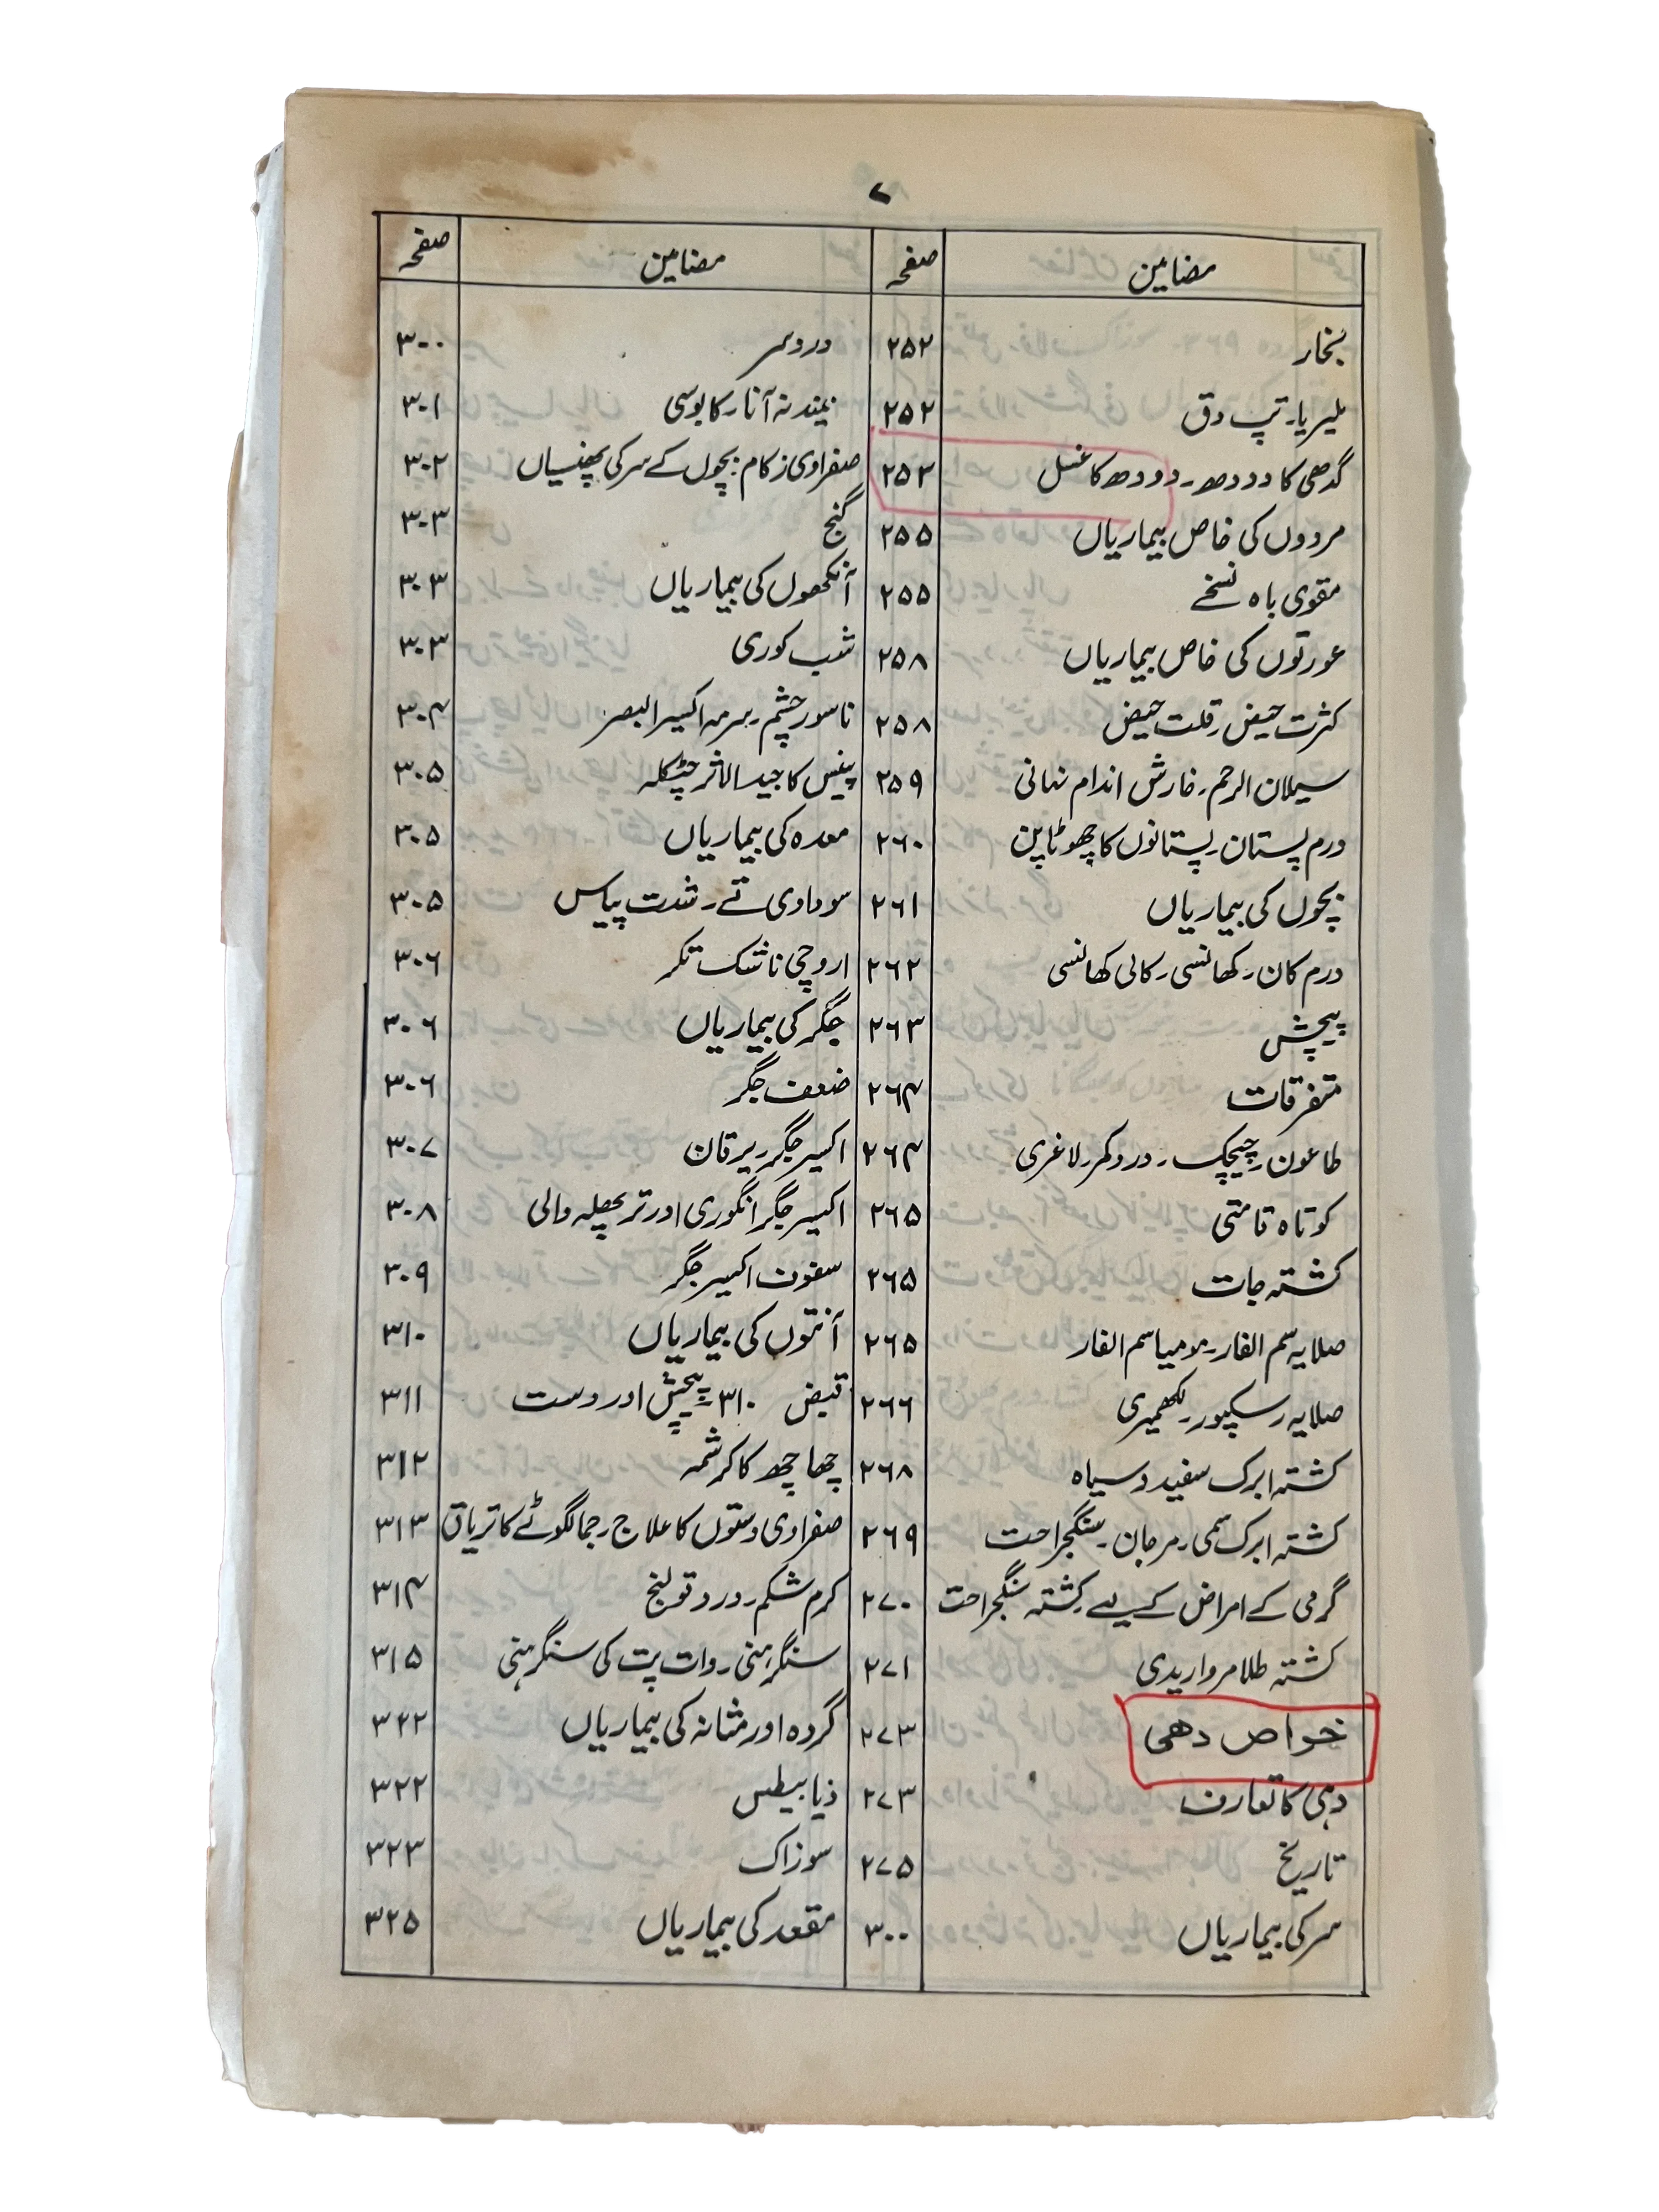 ۷
مضامین صفحہ مضامین صفحہ
بخار ۲۵۲ درد سر ۳۰۰
ملیریا۔ تپ دق ۲۵۲ نیند نہ آنا۔ کابوسی ۳۰۱
گدھی کا دودھ۔ دودھ کا غسل ۲۵۳ صفراوی زکام۔ بچوں کے سر کی پھنسیاں ۳۰۲
مردوں کی خاص بیماریاں ۲۵۵ گنج ۳۰۳
مقوی باہ نسخے ۲۵۵ آنکھوں کی بیماریاں ۳۰۳
عورتوں کی خاص بیماریاں ۲۵۸ شب کوری ۳۰۳
کثرت حیض۔ قلت حیض ۲۵۸ ناسور چشم۔ سرمہ اکسیر البصر ۳۰۴
سیلان الرحم۔ خارش اندام نہانی ۲۵۹ پینس کا جید الاثر چٹکلہ ۳۰۵
ورم پستان۔ پستانوں کا چھوٹا پن ۲۶۰ معدہ کی بیماریاں ۳۰۵
بچوں کی بیماریاں ۲۶۱ سوداوی قے۔ شدت پیاس ۳۰۵
ورم کان۔ کھانسی۔ کالی کھانسی ۲۶۲ اروچی ناشک تکر ۳۰۶
پیچش ۲۶۳ جگر کی بیماریاں ۳۰۶
متفرقات ۲۶۴ ضعف جگر ۳۰۶
طاعون۔ چیچک۔ درد کمر۔ لاغری ۲۶۴ اکسیر جگر۔ یرقان ۳۰۷
کوتاہ قامتی ۲۶۵ اکسیر جگر انگوری اور تر پھلہ والی ۳۰۸
کشتہ جات ۲۶۵ سفوف اکسیر جگر ۳۰۹
صلایہ سم الفار۔ مومیا سم الفار ۲۶۵ آنتوں کی بیماریاں ۳۱۰
صلایہ رسکپور۔ لکھمیری ۲۶۶ قبض ۳۱۰۔ پیچش اور دست ۳۱۱
کشتہ ابرک سفید و سیاہ ۲۶۸ چھاچھ کا کرشمہ ۳۱۲
کشتہ ابرک سمی۔ مرجان۔ سنگجراحت ۲۶۹ صفراوی دستوں کا علاج۔ جمالگوٹے کا تریاق ۳۱۳
گرمی کے امراض کے لیے کشتہ سنگجراحت ۲۷۰ کرم شکم۔ درد قولنج ۳۱۴
کشتہ طلا مرواریدی ۲۷۱ سنگرہنی۔ وات پت کی سنگرہنی ۳۱۵
خواص دھی ۲۷۳ گردہ اور مثانہ کی بیماریاں ۳۲۲
دہی کا تعارف ۲۷۳ ذیابیطس ۳۲۲
تاریخ ۲۷۵ سوزاک ۳۲۳
سر کی بیماریاں ۳۰۰ مقعد کی بیماریاں ۳۲۵